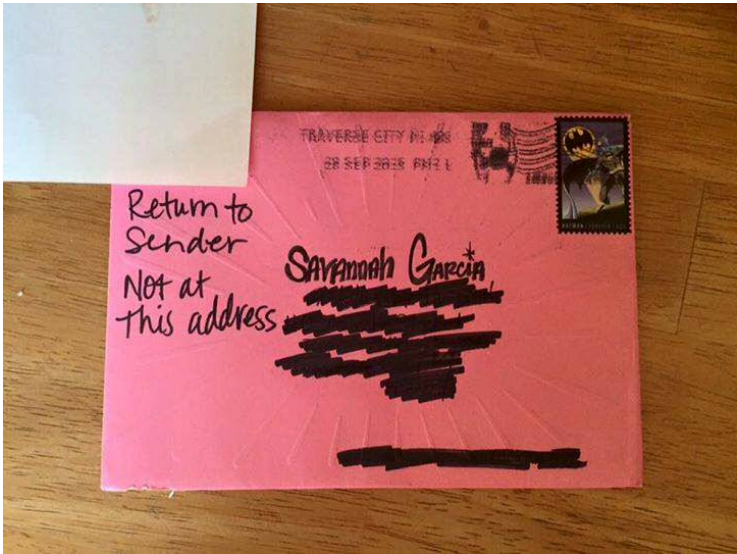 TRAVERSE CITY MI
28 SEP 2015 PM 2 L
Return to
Sender
Not at
this address
SAVANNAH GARCIA